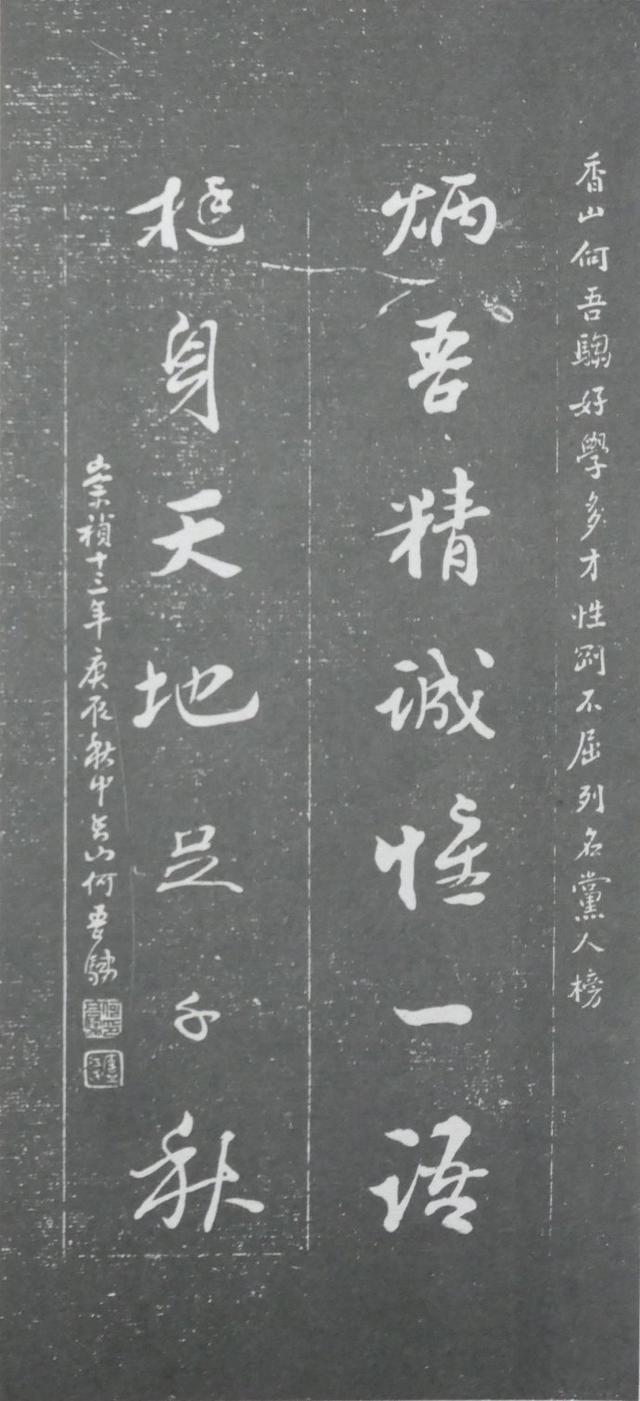 香山何吾騶好學多才性剛不屈列名黨人榜
炳吾精誠惟一語
挺身天地足千秋
崇禎十三年庚辰秋中香山何吾騶